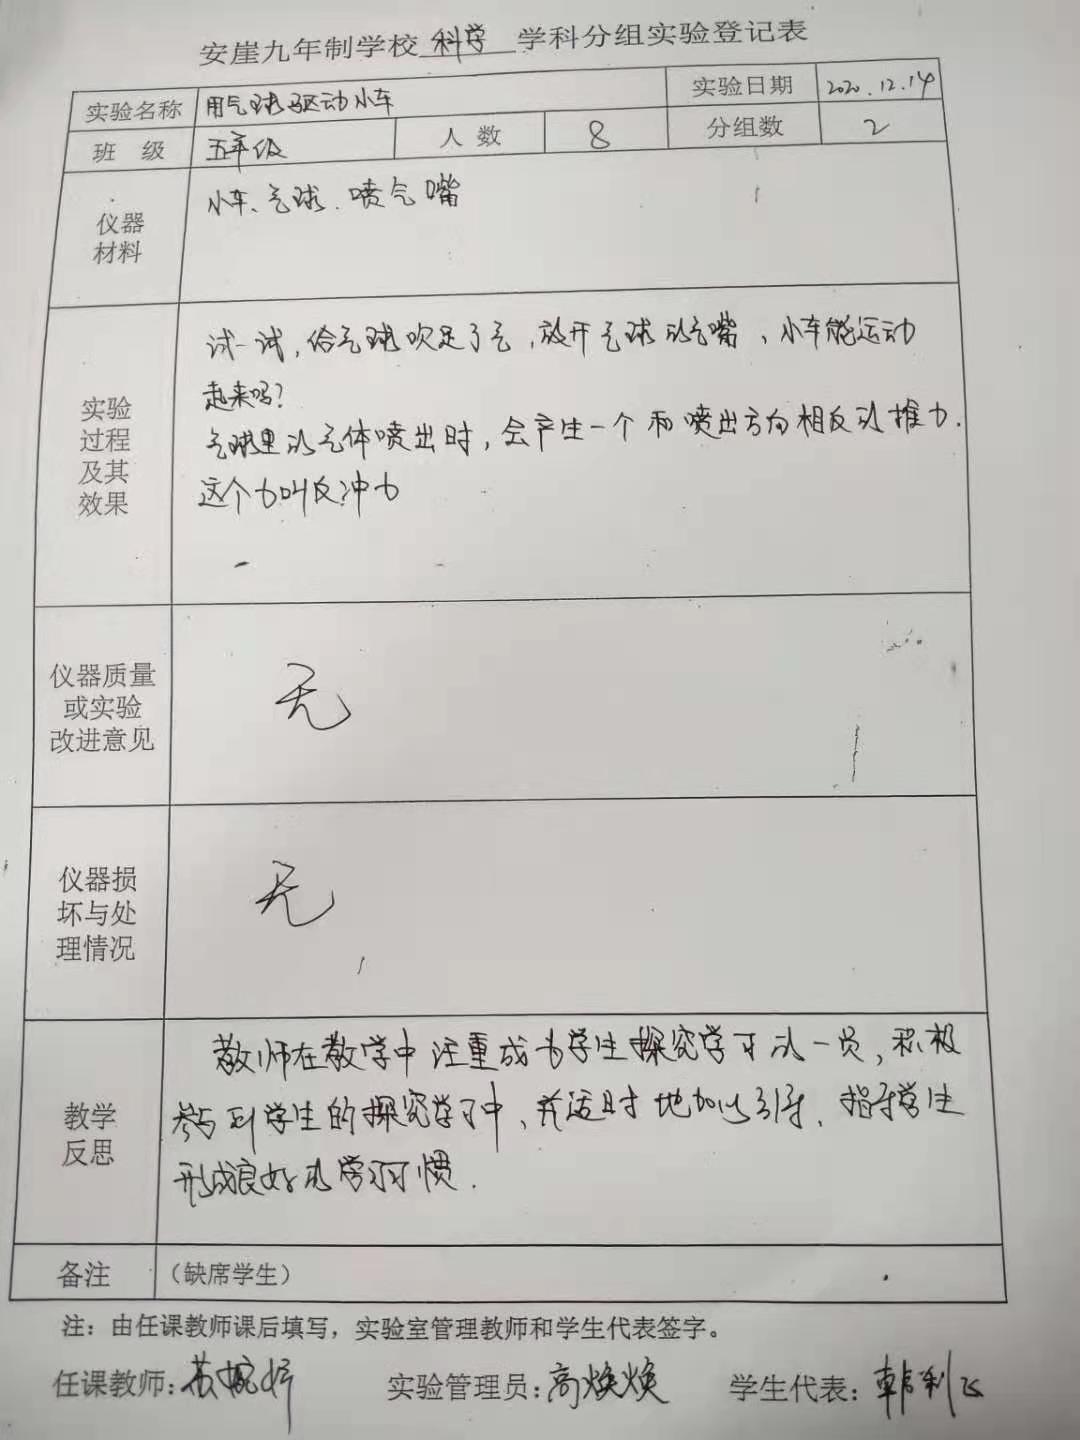 安崖九年制学校 科学 学科分组实验登记表
实验名称 用气球驱动小车 实验日期 2020.12.14
班 级 五年级 人数 8 分组数 2
仪器
材料
小车、气球、喷气嘴
实验
过程
及其
效果
试一试，给气球吹足了气，放开气球的气嘴、小车能运动
起来吗？
气球里的气体喷出时，会产生一个和喷出方向相反的推力.
这个力叫反冲力
仪器质量
或实验
改进意见
无
仪器损
坏与处
理情况
无
教学
反思
教师在教学中注重成为学生探究学习的一员，积极
参与到学生的探究学习中、并适时地加以引导、指导学生
形成良好的学习习惯.
备注 （缺席学生）
注：由任课教师课后填写，实验室管理教师和学生代表签字。
任课教师： 实验管理员：高焕焕 学生代表：韩利